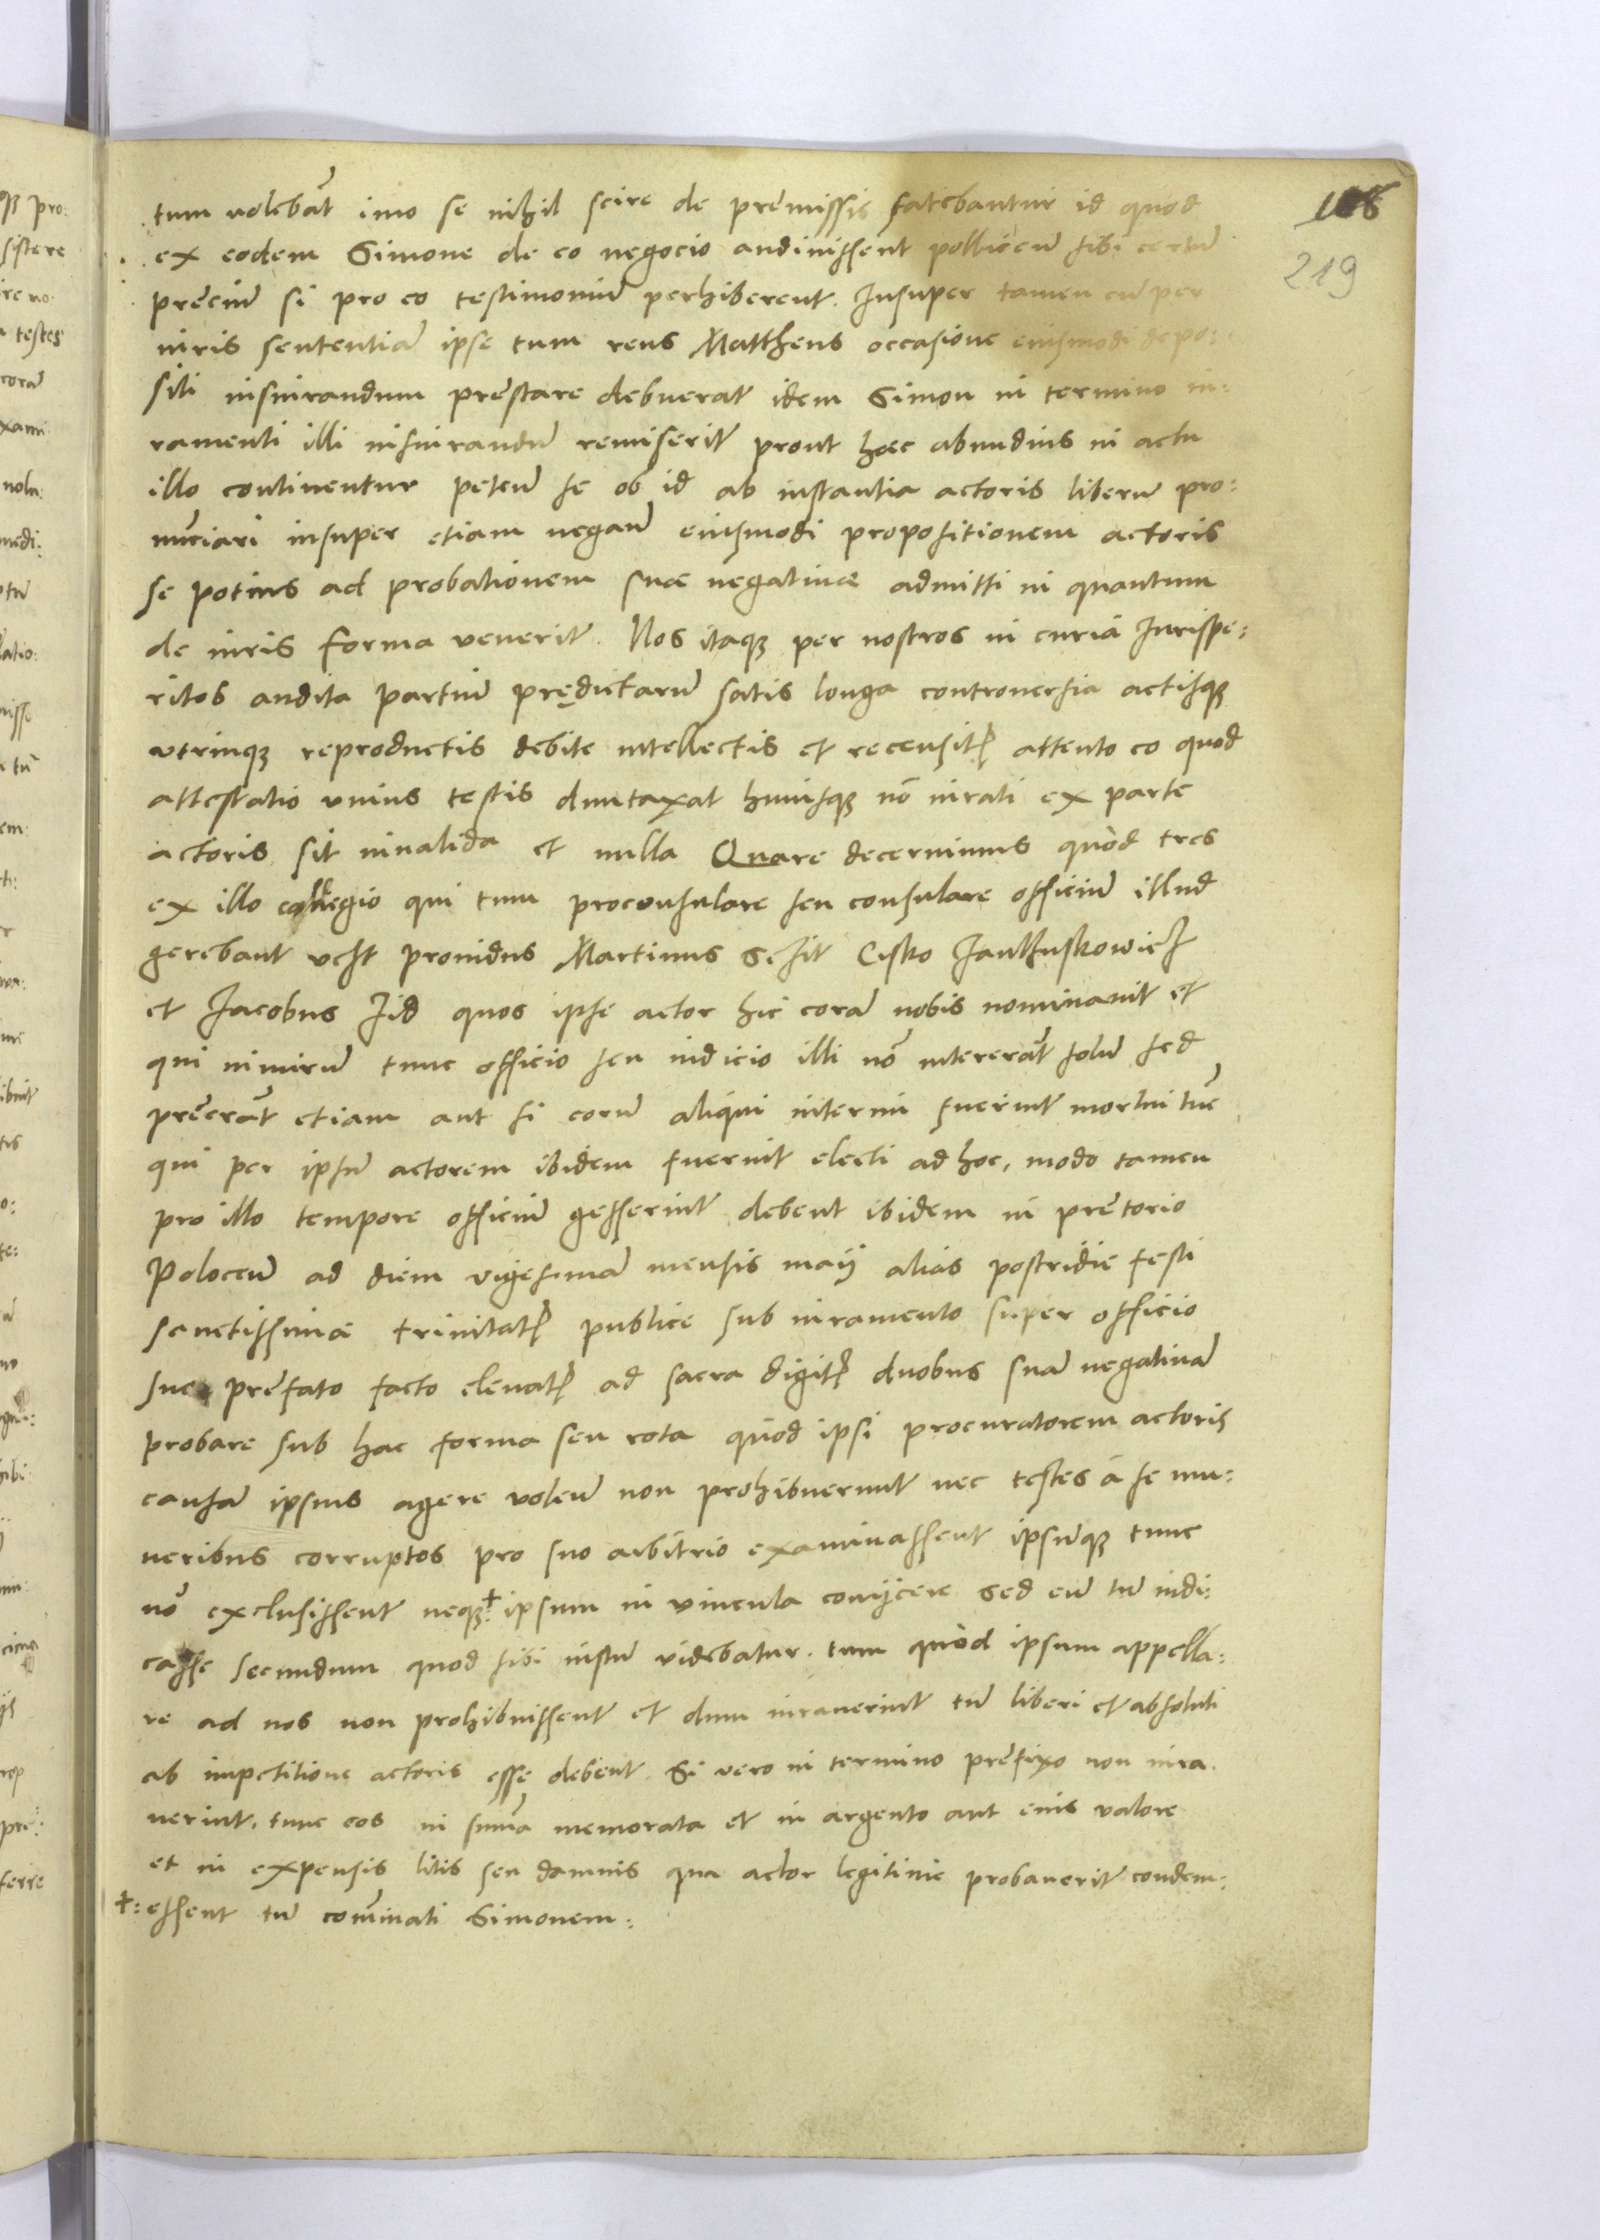 108
219
tum volebāt imo se nihil scire de premissis fatebantur id quod
ex eodem Simone de eo negocio audivissent pollicen̄ sibi certū
preciū si pro eo testimoniū perhiberent. Insuper tamen cū per
iuris sententiā ipse tum reus Mattheus occasione eiusmodi depo:
siti iusiurandum prestare debuerat idem Simon in termino iu:
ramenti illi iusiurandū remiserit prout haec abundius in actu
illo continentur peten̄ se ob id ab instantia actoris liberū pro:
nūciari insuper etiam negan̄ eiusmodi propositionem actoris
se potius ad probationem suae negativae admitti in quantum
de iuris forma venerit. Nos itaqȝ per nostros in curia Iurispe:
ritos audita partiū prędictarū satis longa controversia actisqȝ
utrinqȝ reproductis debite intellectis et recensitꝭ attento eo quod
attestatio unius testis duntaxat huiusqȝ nō iurati ex parte
actoris sit invalida et nulla Quare decernimus quòd tres
ex illo collegio qui tum proconsulare seu consulare officiū illud
gerebant uclt providus Martinus Schit Cisko Januskowicz
et Jacobus Zid quos ipse actor hic corā nobis nominavit et
qui nimirū tunc officio seu iudicio illi nō intererāt solū sed
preerāt etiam aut si eorū aliqui interim fuerint mortui tūc
qui per ipsū actorem ibidem fuerint electi ad hoc, modo tamen
pro illo tempore officiū gesserint debent ibidem in pretorio
Polocen̄ ad diem vigesimā mensis maij alias postridie festi
sanctissimae trinitatꝭ publice sub iuramento super officio
suo prefato facto elevatꝭ ad sacra digitꝭ duobus suā negativā
probare sub hac forma seu rota quòd ipsi procuratorem actoris
causā ipsius agere volen̄ non prohibuerunt nec testes à se mu:
neribus corruptos pro suo arbitrio examinassent ipsumqȝ tunc
nō exclusissent neqȝ ✝ ipsum in vincula conijcere sed eū tū iudi:
casse secundum quod sibi iustū videbatur. tum quòd ipsum appella:
re ad nos non prohibuissent et dum iuraverint tū liberi et absoluti
ab impetitione actoris esse debent. Si vero in termino prefixo non iura
verint, tunc eos in sūma memorata et in argento aut eius valore
et in expensis litis seu damnis qua actor legitime probaverit condem:
✝: essent tū cōminati Simonem: